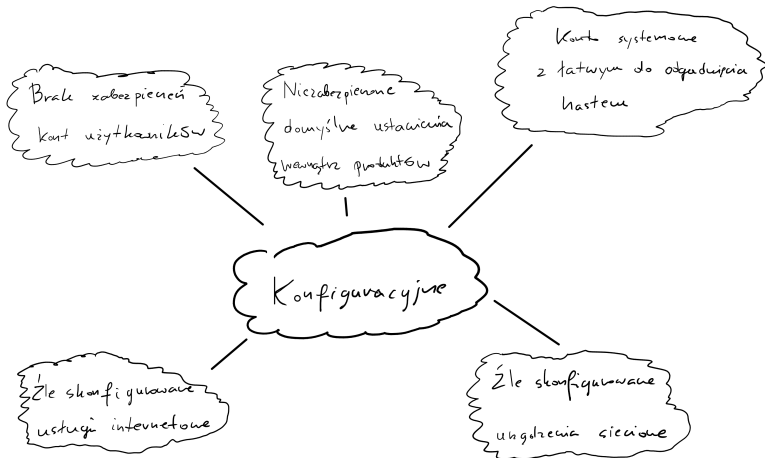 Brak zabezpieczeń
kont użytkowników
Niezabezpieczone
domyślne ustawienia
wewnątrz produktów
Konto systemowe
z łatwym do odgadnięcia
hasłem
Konfiguracyjne
Źle skonfigurowane
usługi internetowe
Źle skonfigurowane
urządzenia sieciowe